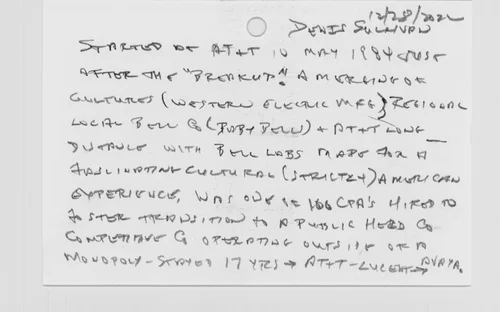 12/28/2022
DENIS SULLIVAN
STARTED AT AT+T IN MAY 1984 JUST
AFTER THE "BREAKUP". A MERGING OF
CULTURES (WESTERN ELECTRIC MFG) REGIONAL
LOCAL BELL CO (BABY BELLS) + AT+T LONG
DISTANCE WITH BELL LABS MADE FOR A
FASCINATING CULTURAL (STRICTLY) AMERICAN
EXPERIENCE. WAS ONE OF 100 CPA'S HIRED TO
FOSTER TRANSITION TO A PUBLIC HELD CO
COMPETITIVE CO OPERATING OUTSIDE OF A
MONOPOLY - STAYED 17 YRS → AT+T - LUCENT → AVAYA.